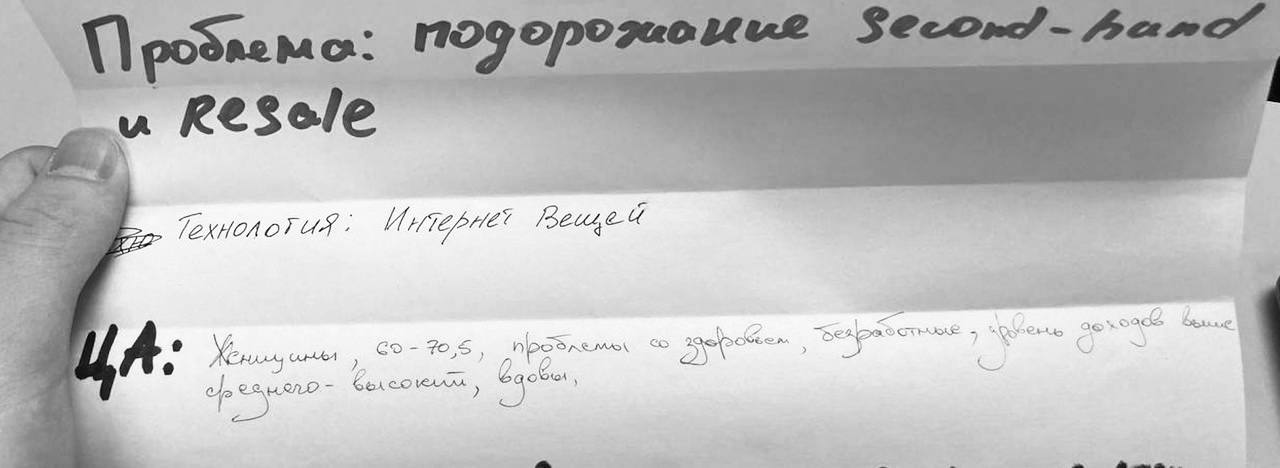 Проблема: подорожание second-hand
и Resale
Технология: Интернет Вещей
ЦА: Женщины, 60-70,5, проблемы со здоровьем, безработные, уровень доходов выше
среднего-высокий, вдовы,